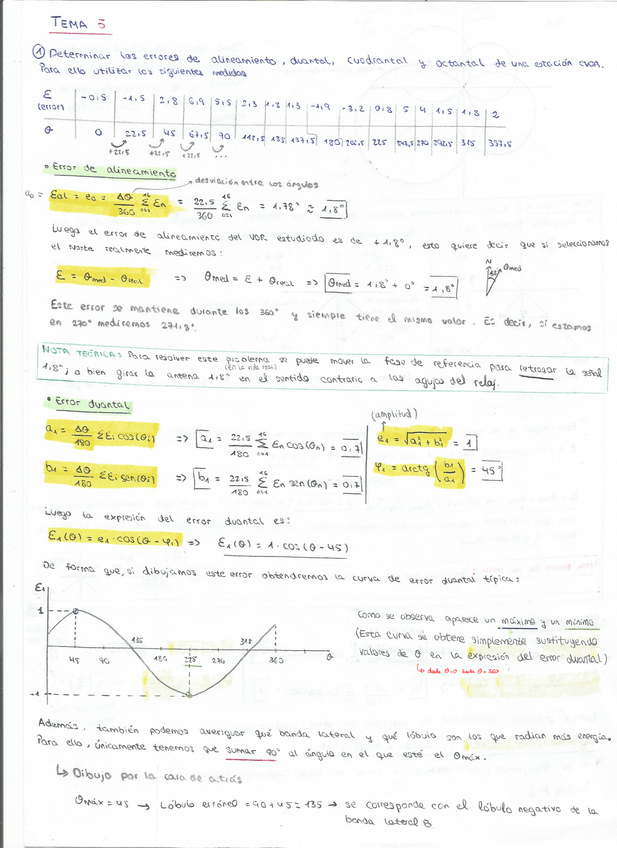 TEMA 5
① Determinar los errores de alineamiento, duantal, cuadrantal y octantal de una estación CVOR.
Para ello utilizar los siguientes medidas
ε (error) | -0,5 | -1,5 | 2,8 | 6,9 | 5,5 | 2,3 | 1,8 | 1,3 | -1,9 | -3,2 | 0,8 | 5 | 4 | 1,5 | 1,8 | 2
θ | 0 | 22,5 | 45 | 67,5 | 90 | 112,5 | 135 | 137,5 | 180 | 202,5 | 225 | 247,5 | 270 | 292,5 | 315 | 337,5
+22,5 +22,5 +22,5 ...
• Error de alineamiento
desviación entre los ángulos
a₀ = εal = e₀ = Δθ/360 Σ(n=1, 16) εn = 22,5/360 Σ(n=1, 16) εn = 1,78° ≈ 1,8°
Luego el error de alineamiento del VOR estudiado es de +1,8°, esto quiere decir que si seleccionamos
el Norte realmente mediremos:
ε = θmed - θreal => θmed = ε + θreal => θmed = 1,8° + 0° = 1,8°
N θmed
Este error se mantiene durante los 360° y siempre tiene el mismo valor. Es decir, si estamos
en 270° mediremos 271,8°.
NOTA TEÓRICA: Para resolver este problema se puede mover la fase de referencia para retrasar la señal
(en la vida real)
1,8°; o bien girar la antena 1,8° en el sentido contrario a las agujas del reloj.
• Error duantal
a₁ = Δθ/180 Σεi cos(θi) => a₁ = 22,5/180 Σ(n=1, 16) εn cos(θn) = 0,7
b₁ = Δθ/180 Σεi sen(θi) => b₁ = 22,5/180 Σ(n=1, 16) εn sen(θn) = 0,7
(amplitud)
e₁ = √(a₁² + b₁²) = 1
φ₁ = arctg (b₁/a₁) = 45°
Luego la expresión del error duantal es:
ε₁(θ) = e₁ · cos(θ - φ₁) => ε₁(θ) = 1 · cos(θ - 45)
De forma que, si dibujamos este error obtendremos la curva de error duantal típica:
ε₁
1
-1
45 90 135 180 225 270 315 360 θ
Como se observa aparece un máximo y un mínimo
(Esta curva se obtiene simplemente sustituyendo
valores de θ en la expresión del error duantal)
↳ desde θ=0 hasta θ=360
Además, también podemos averiguar qué banda lateral y qué lóbulo son los que radian más energía.
Para ello, únicamente tenemos que sumar 90° al ángulo en el que esté el θmáx.
↳ Dibujo por la cara de atrás
θmáx = 45 → Lóbulo erróneo = 90 + 45 = 135 → se corresponde con el lóbulo negativo de la
banda lateral B.